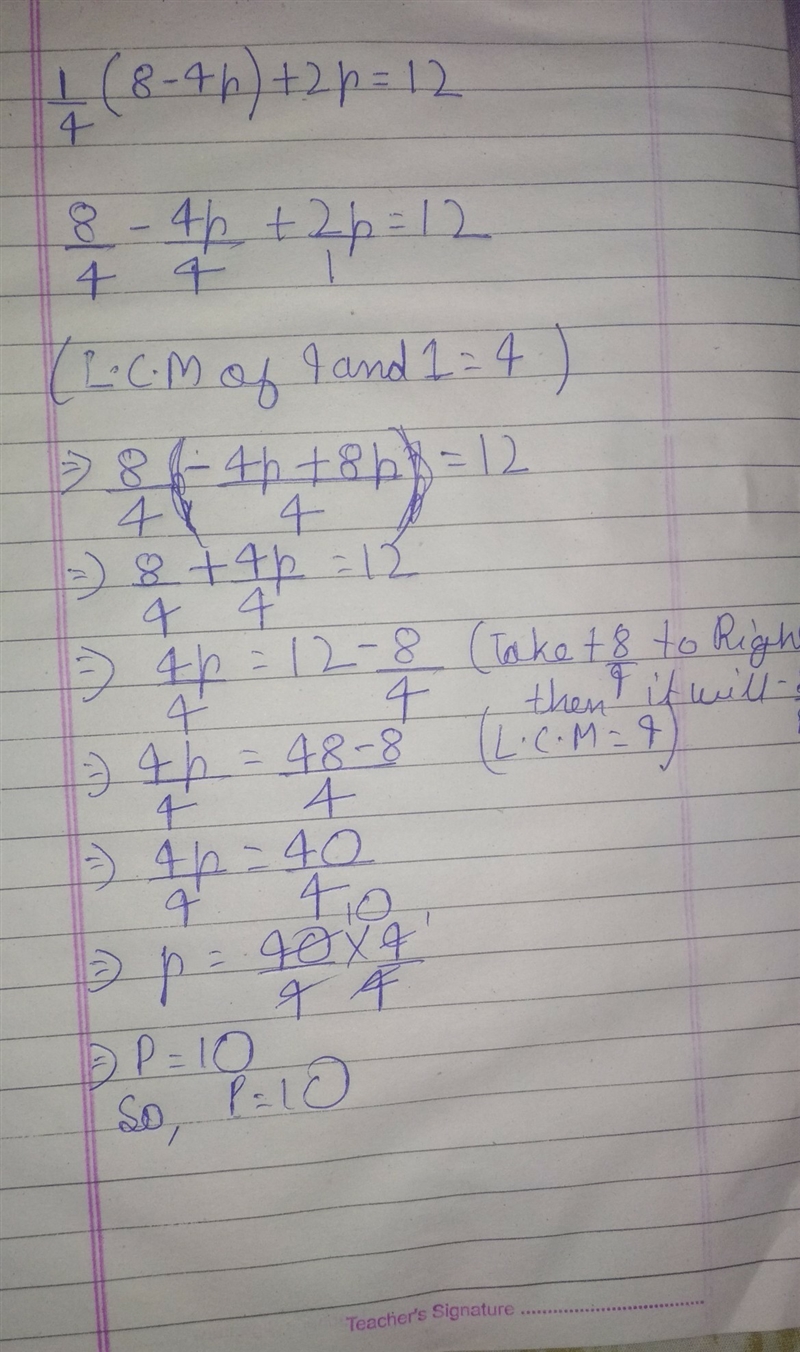 1/4 (8-4p)+2p=12
8/4 - 4p/4 + 2p/1 =12
(L.C.M of 4 and 1=4)
⇒ 8/4 (-4p+8p/4) =12
⇒ 8/4 + 4p/4 =12
⇒ 4p/4 = 12-8/4 (Take +8/4 to Righ
then it will -
⇒ 4p/4 = 48-8/4 (L.C.M=4)
⇒ 4p/4 = 40/4
⇒ p = 40×4/4 4 10 1
⇒ P=10
So, P=10
Teacher's Signature